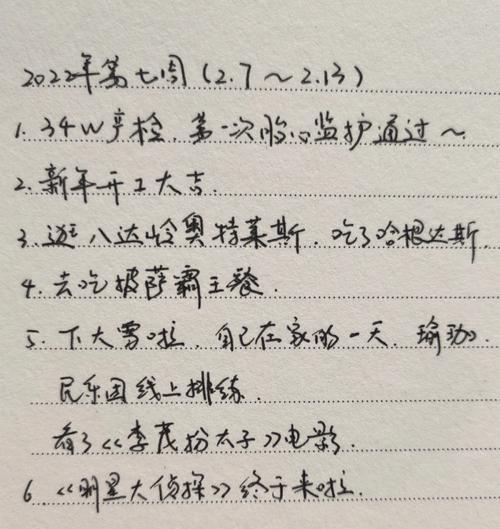 2022年第七周(2.7～2.13)
1. 34W产检,第一次胎心监护通过～
2. 新年开工大吉.
3. 逛八达岭奥特莱斯.吃了哈根达斯.
4. 去吃披萨霸王餐.
5. 下大雪啦.自己在家的一天.瑜珈.
民乐团线上排练.
看了《李茂扮太子》电影.
6.《明星大侦探》终于来啦.